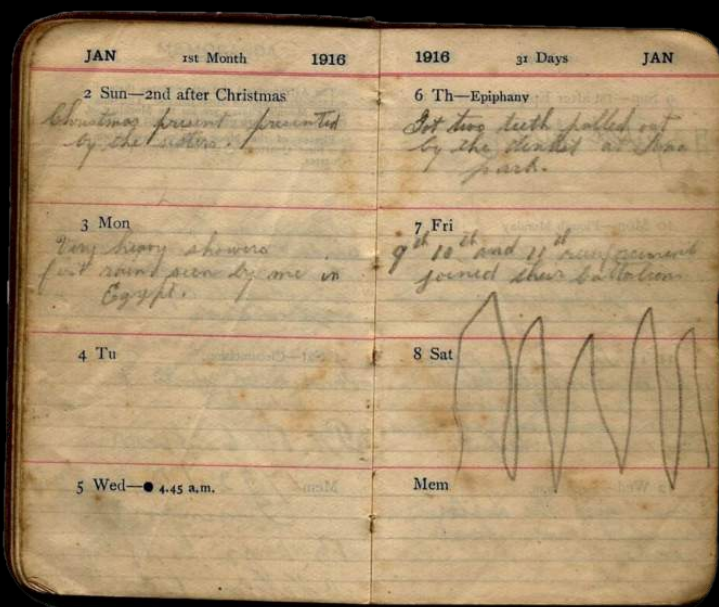 JAN 1st Month 1916
2 Sun—2nd after Christmas
Christmas present presented
by the sisters.
3 Mon
Very heavy showers
first rains seen by me in
Egypt.
4 Tu
5 Wed—● 4.45 a.m.
1916 31 Days JAN
6 Th—Epiphany
Got two teeth pulled out
by the dentist at
park.
7 Fri
9th 10th and 11th reinforcement
joined their battalion
8 Sat
Mem